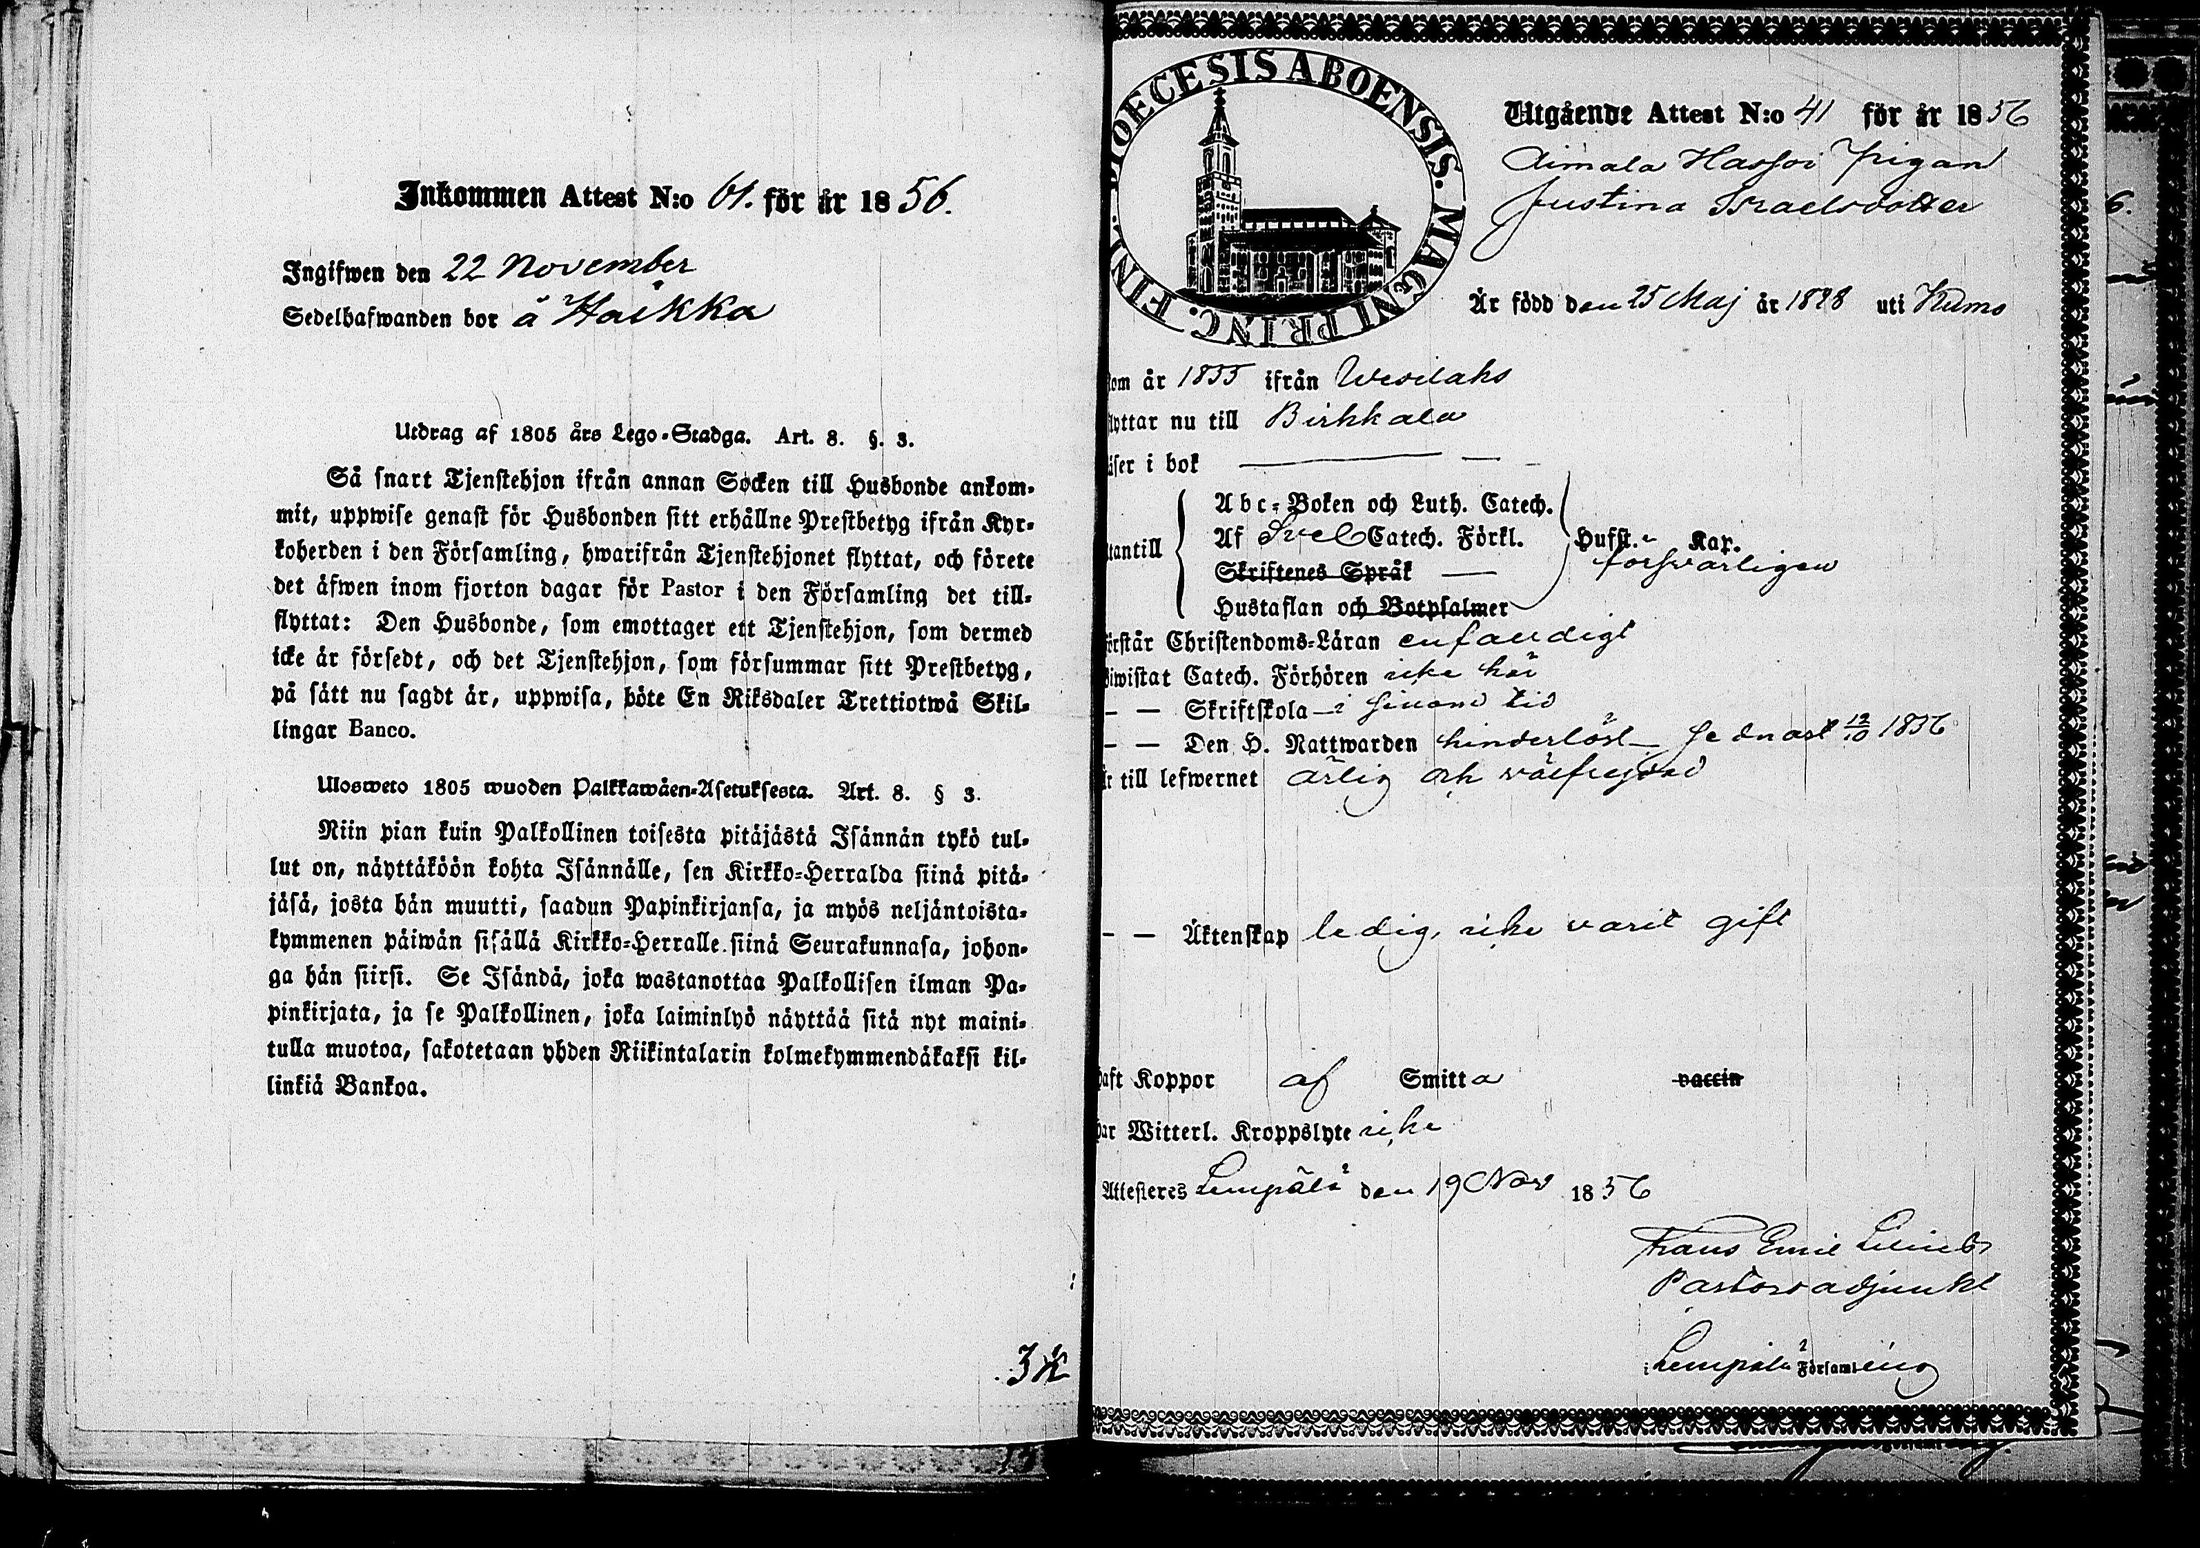 Inkommen Attest N:o 61. för år 1856.
Ingifwen den 22 November
Sedelhafwanden bor å Haikka
Utdrag af 1805 års Lego-Stadga. Art. 8. §. 3.
Så snart Tjenstehjon ifrån annan Socken till Husbonde ankom-
mit, uppwise genast för Husbonden sitt erhållne Prestbetyg ifrån Kyr-
koherden i den Församling, hwarifrån Tjenstehjonet flyttat, och förete
det äfwen inom fjorton dagar för Pastor i den Församling det till-
flyttat: Den Husbonde, som emottager ett Tjenstehjon, som dermed
icke är försedt, och det Tjenstehjon, som försummar sitt Prestbetyg,
på sätt nu sagdt är, uppwisa, böte En Riksdaler Trettiotwå Skil-
lingar Banco.
Ulosweto 1805 wuoden Palkkawäen-Asetuksesta. Art. 8. § 3.
Niin pian kuin Palkollinen toisesta pitäjästä Isännän tykö tul-
lut on, näyttäköön kohta Isännälle, sen Kirkko-Herralda siinä pitä-
jäsä, josta hän muutti, saadun Papinkirjansa, ja myös neljäntoista-
kymmenen päiwän sisällä Kirkko-Herralle siinä Seurakunnasa, johon-
ga hän siirsi. Se Isändä, joka wastanottaa Palkollisen ilman Pa-
pinkirjata, ja se Palkollinen, joka laiminlyö näyttää sitä nyt maini-
tulla muotoa, sakotetaan yhden Riikintalarin kolmekymmendäkaksi kil-
linkiä Bankoa.
DIOECESIS ABOENSIS. MAGNI PRINC. FINL.
Utgående Attest N:o 41 för år 1856
Aimala Hassoi pigan
Justina Israelsdotter
Är född den 25 Maj år 1828 uti Kumo
kom år 1855 ifrån Wesilaks
flyttar nu till Birkkala
läser i bok
utantill
Abc-Boken och Luth. Catech.
Af Svel Catech. Förkl.
Skriftenes Språk
Hustaflan och Botpsalmer
Hufst. Kap.
försvarligen
förstår Christendoms-Läran enfaldigt
Biwistat Catech. Förhören icke här
— — Skriftskola i sinom tid
— — Den H. Nattwarden hinderlöst sednast 12/10 1856
Är till lefwernet ärlig och välfrejdad
— — Äktenskap ledig, icke varit gift
haft Koppor af Smitta vaccin
har Witterl. Kroppslyte icke
Attesteres Lempälä den 19 Nov 1856
Frans Emil
Pastorsadjunkt
i Lempälä Församling